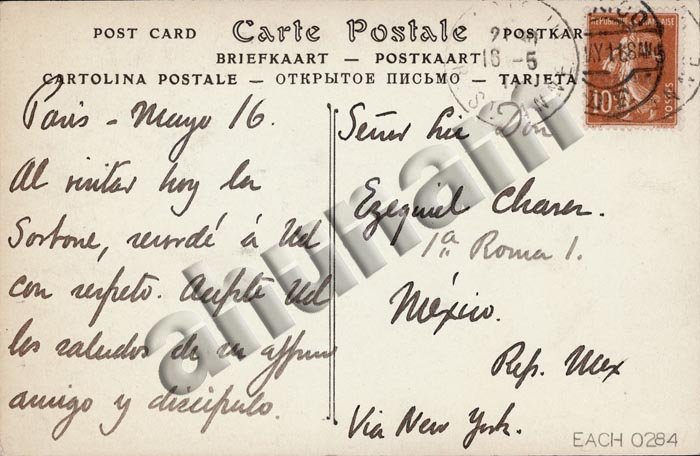 POST CARD Carte Postale POSTKAR
BRIEFKAART — POSTKAART
CARTOLINA POSTALE – ОТКРЫТОЕ ПИСЬМО – TARJETA
10
POSTES
16 – 5
Paris – Mayo 16.
Al visitar hoy la
Sorbone, recordé á Ud
con respeto. Acepte Ud
los saludos de su affmo
amigo y discípulo.
Señor Lic Don
Ezequiel Chavez.
1ª Roma 1.
México.
Rep. Mex
Via New York.
EACH 0284
ahunam